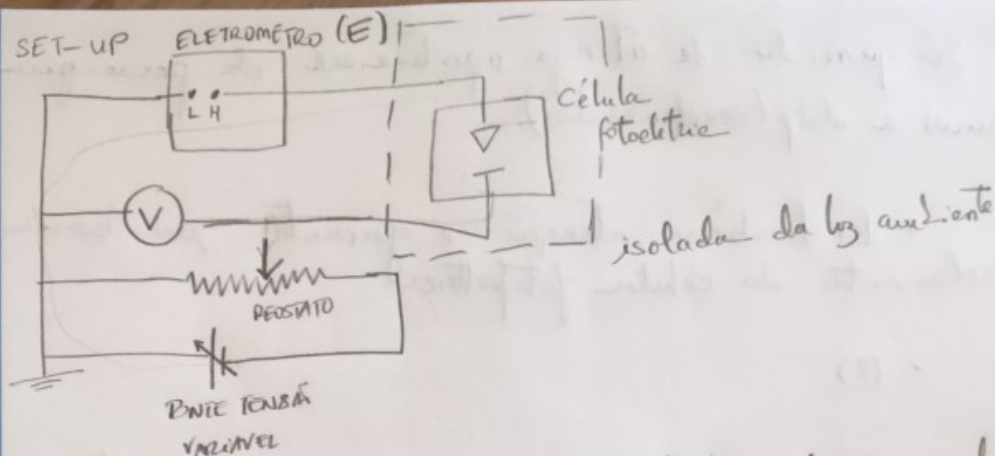 SET-UP
ELETROMETRO (E)
L H
Célula
fotoelétrica
V
isolada da luz ambiente
REOSTATO
FONTE TENSÃ
VARIÁVEL